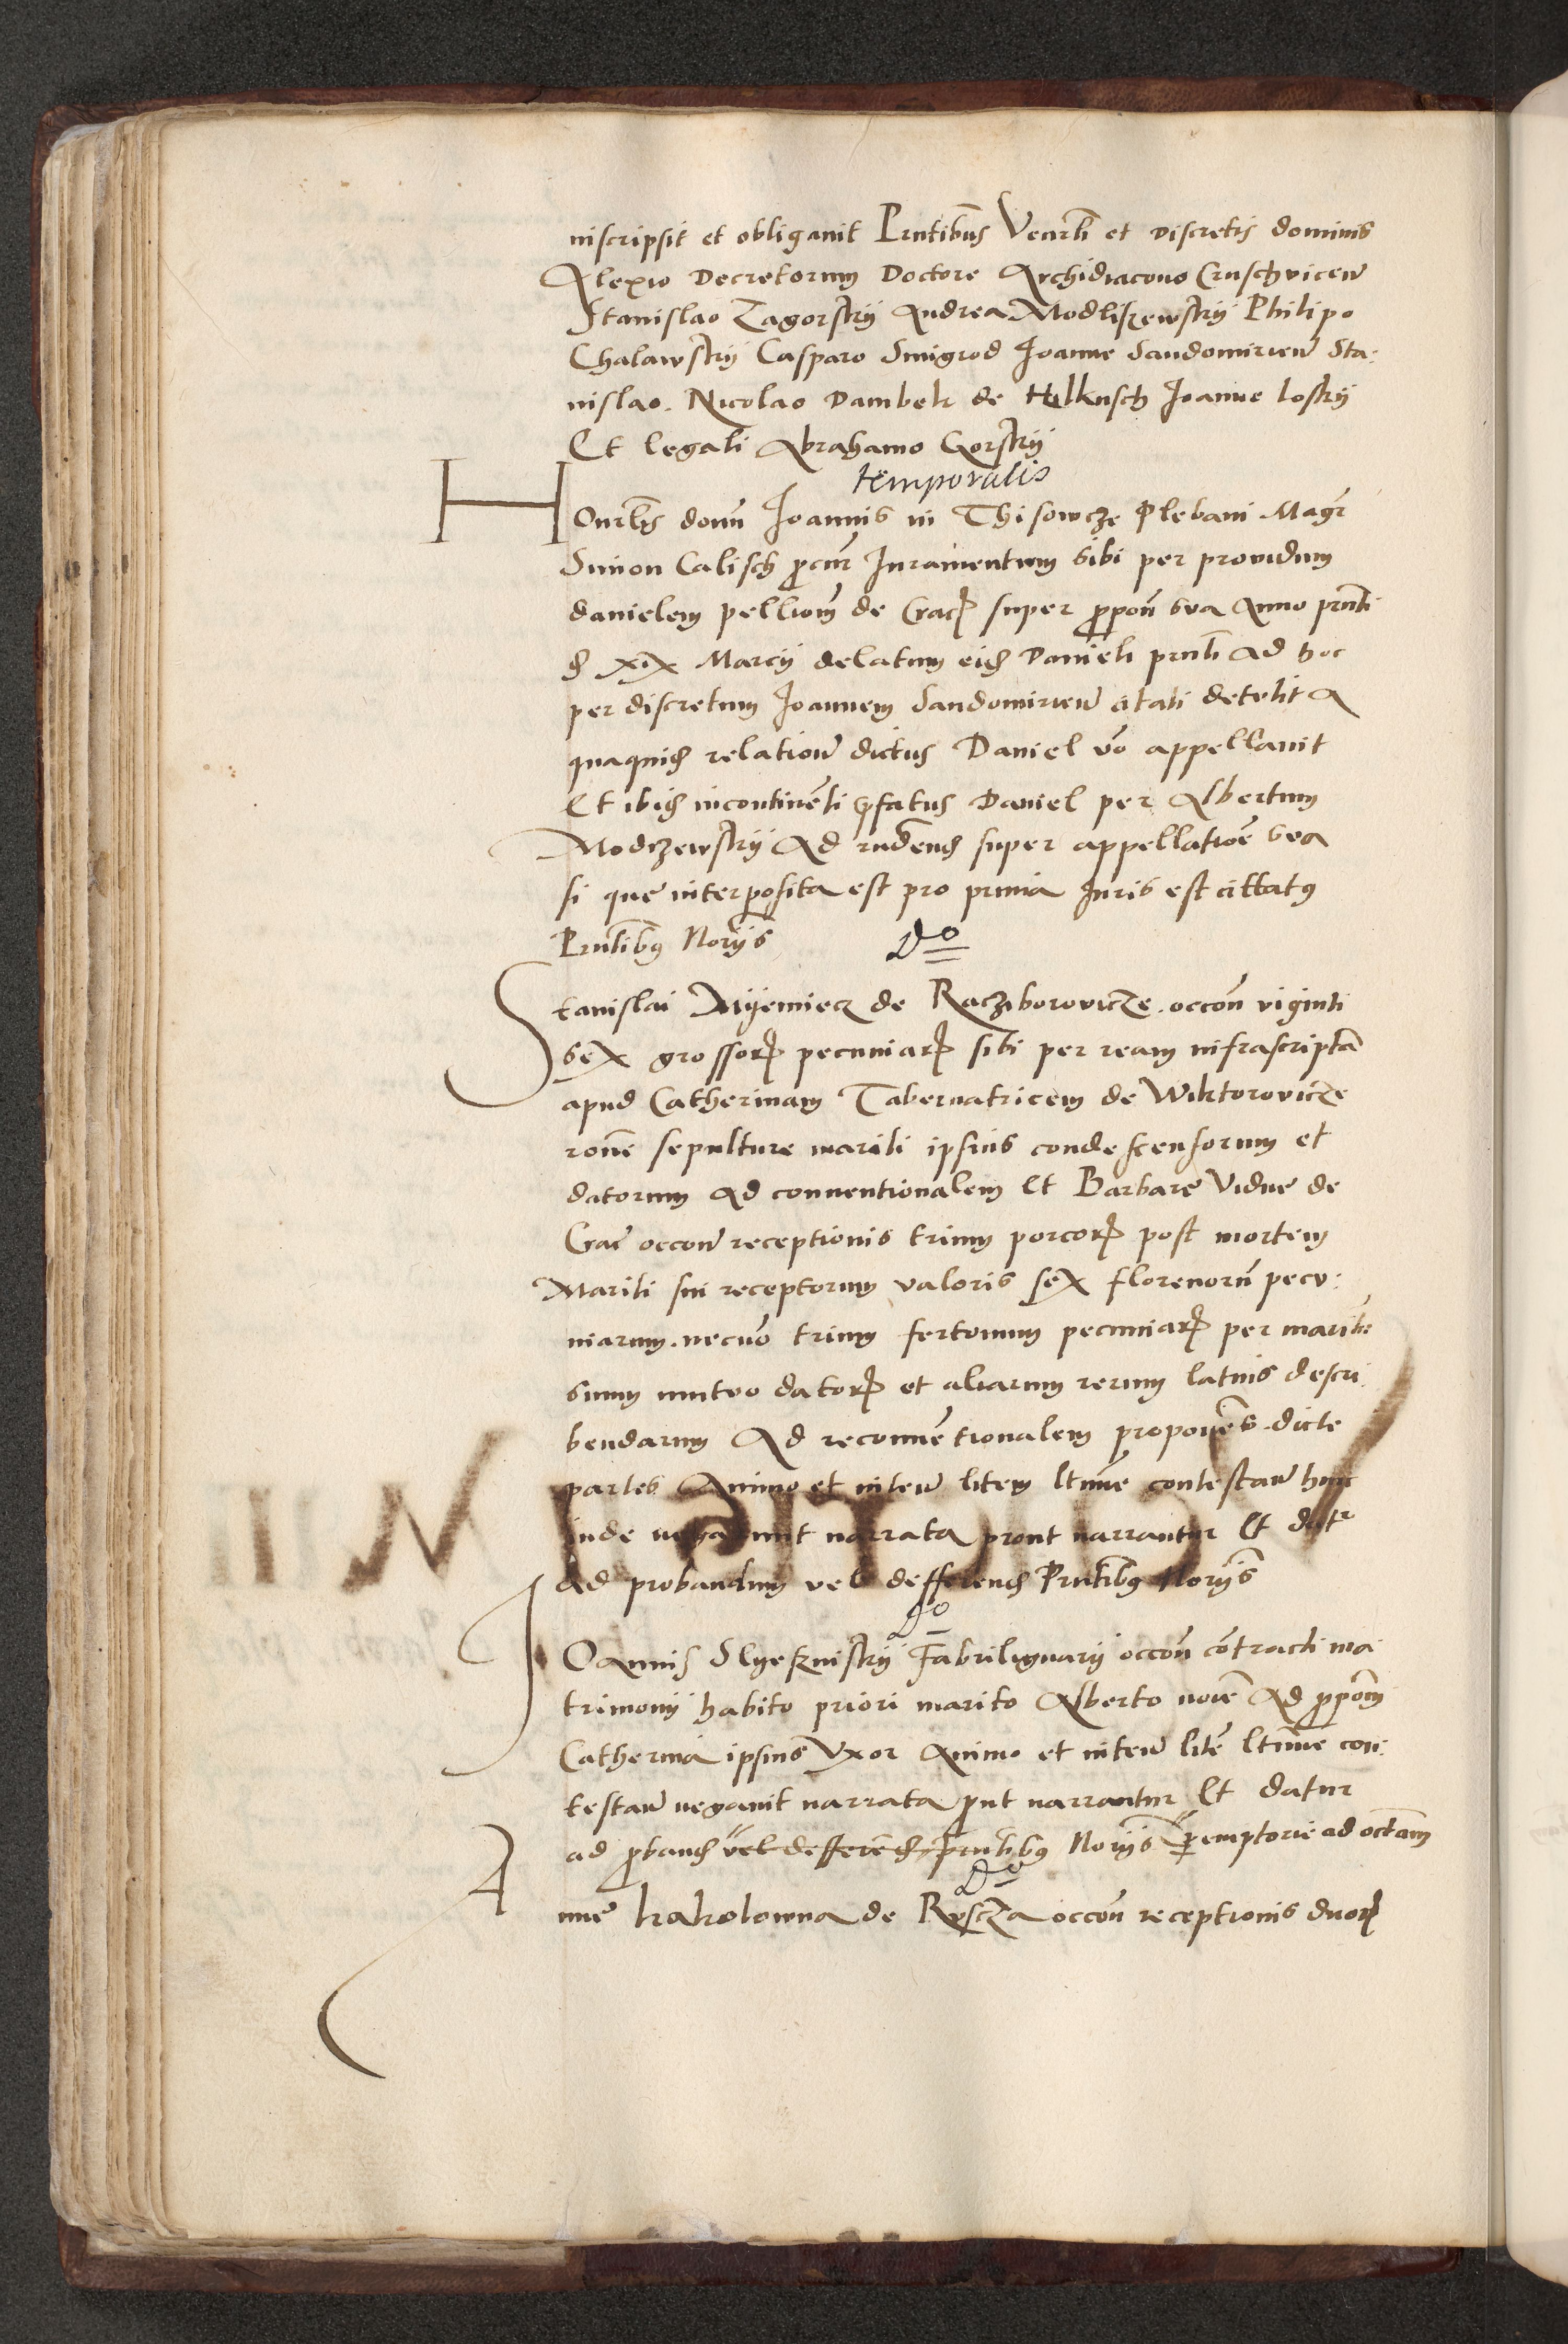 inscripsit et obligavit Prntibus Venrli et discretis dominis
Alexio Decretorum Doctore Archidiacono Cruschvicen
Stanislao Zagorskij Andrea Modliszewskij Philipo
Chalawskij Casparo Smigrod Joanne Sandomirien Sta-
nislao. Nicolao Dambek de Helkusch Joanne Loskij
Et legali Abrahamo Gorskij
temporalis
Honrlis domini Joannis in Thisowcze Plebani Magr
Simon Calisch procur Juramentum sibi per providum
danielem pellionem de Crac super propon sua Anno prnti
d xix Marcij delatum eid Danieli prnti ad hoc
per discretum Joannem Sandomirien citati detelit a
quaquid relatione dictus Daniel vo appellavit
Et ibid incontinenti prefatus Daniel per Albertum
Modczewskij Ad vidend super appellatione sua
si que interposita est pro prima Juris est cittatus
Prntibus Norijs
Do
Stanislai Nyemiecz de Racziborovicze. occon viginti
sex grossorum pecuniarum sibi per ream infrascriptam
apud Catherinam Tabernatricem de Wiktorovicze
rone sepulture mariti ipsius condescensorum et
datorum Ad conventionalem Et Barbare Vidue de
Crac occon receptionis trium porcorum post mortem
Mariti sui receptorum valoris sex florenorum pecu-
niarum. necnon trium fertonum pecuniarum per maritum
suum mutuo datorum et aliarum rerum latius descri-
bendarum Ad reconventionalem proponens. dicte
partes Animo et inten litem ltime contestan hinc
inde negaverunt narrata prout narrantur Et datr
Ad probandum vel defferend Prntibus Norijs
Do
Joannis Slyesznskij Fabrilignarij occon contracti ma-
trimonij habito priori marito Alberto noie Ad propom
Catherina ipsius Uxor Animo et inten lite ltime con-
testan negavit narrata prout narrantur Et datur
ad proband vel defferend prntibus Norijs peremptorie ad octavam
Do
Anne kakolowna de Ruscza occon receptionis duorum